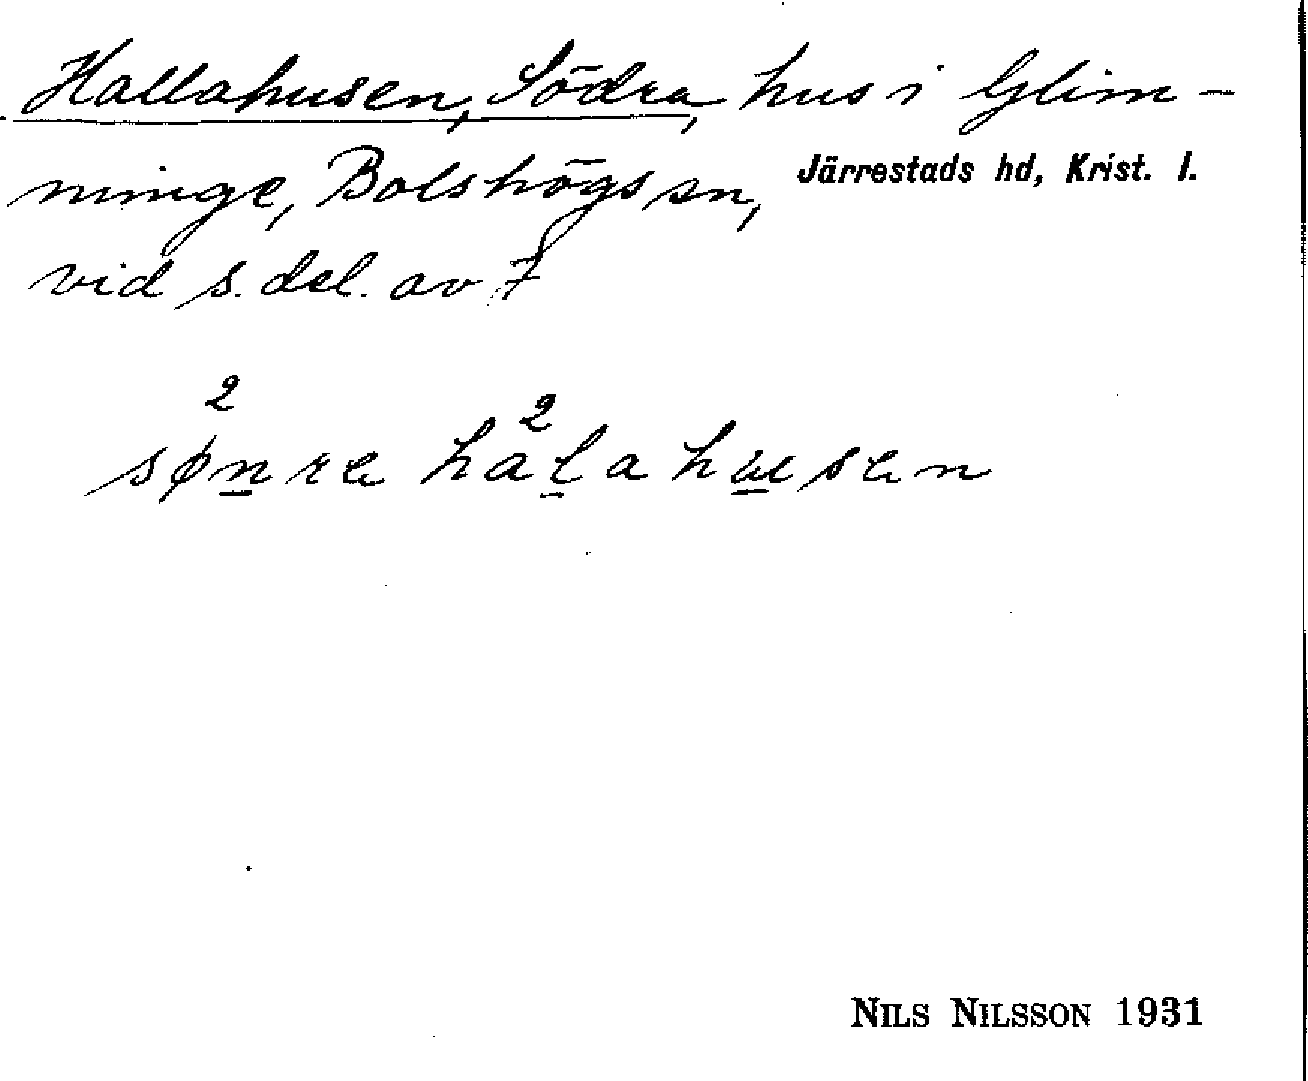 Hallahusen, Södra, hus i Glim-
minge, Bolshögs sn, Järrestads hd, Krist. l.
vid s. del. av 7
sø²nrɐ ha²la husɐn
NILS NILSSON 1931